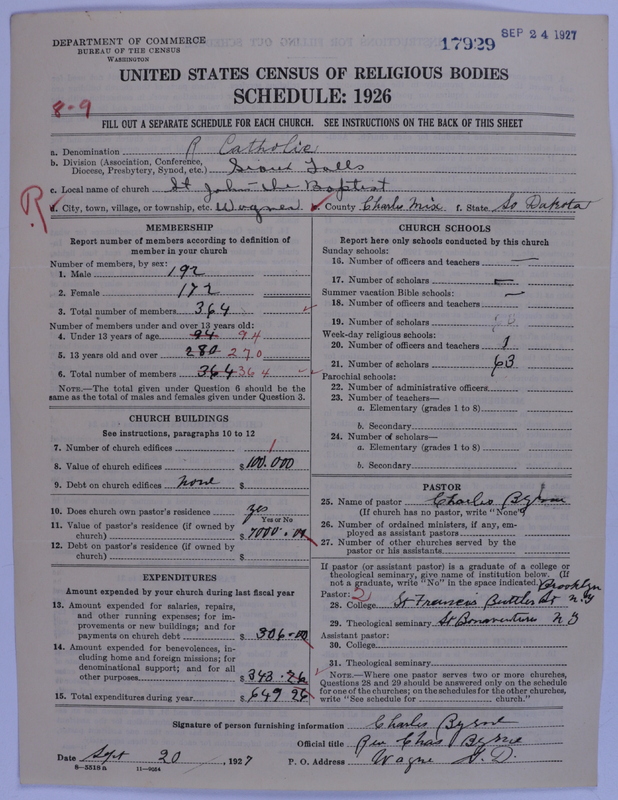 DEPARTMENT OF COMMERCE
BUREAU OF THE CENSUS
WASHINGTON
17929
SEP 24 1927
UNITED STATES CENSUS OF RELIGIOUS BODIES
SCHEDULE: 1926
8-9
FILL OUT A SEPARATE SCHEDULE FOR EACH CHURCH. SEE INSTRUCTIONS ON THE BACK OF THIS SHEET
a. Denomination R Catholic
b. Division (Association, Conference, Diocese, Presbytery, Synod, etc.) Sioux Falls
c. Local name of church St John-the Baptist
R
d. City, town, village, or township, etc. Wagner e. County Charles Mix f. State So Dakota
MEMBERSHIP
Report number of members according to definition of member in your church
Number of members, by sex:
1. Male 192
2. Female 172
3. Total number of members 364
Number of members under and over 13 years old:
4. Under 13 years of age 94 94
5. 13 years old and over 280 270
6. Total number of members 364 364
NOTE.—The total given under Question 6 should be
same as the total of males and females given under Question 3.
CHURCH BUILDINGS
See instructions, paragraphs 10 to 12
7. Number of church edifices 1
8. Value of church edifices $100.000
9. Debt on church edifices none $
10. Does church own pastor's residence? yes
Yes or No
11. Value of pastor's residence (if owned by
church) $7000.00
12. Debt on pastor's residence (if owned by
church) $
EXPENDITURES
Amount expended by your church during last fiscal year
13. Amount expended for salaries, repairs,
and other running expenses; for im-
provements or new buildings; and for
payments on church debt $306.00
14. Amount expended for benevolences, in-
cluding home and foreign missions; for
denominational support; and for all
other purposes $343.26
15. Total expenditures during year $649 26
CHURCH SCHOOLS
Report here only schools conducted by this church
Sunday schools:
16. Number of officers and teachers —
17. Number of scholars —
Summer vacation Bible schools: —
18. Number of officers and teachers
19. Number of scholars
Week-day religious schools:
20. Number of officers and teachers 1
21. Number of scholars 63
Parochial schools:
22. Number of administrative officers
23. Number of teachers—
a. Elementary (grades 1 to 8)
b. Secondary
24. Number of scholars—
a. Elementary (grades 1 to 8)
b. Secondary
PASTOR
25. Name of pastor Charles Byrne
(If church has no pastor, write "None")
26. Number of ordained ministers, if any, em-
ployed as assistant pastors
27. Number of other churches served by the
pastor or his assistants
If pastor (or assistant pastor) is a graduate of a college or
theological seminary, give name of institution below. (If
not a graduate, write "No" in the space indicated.)
Pastor: 2 Brooklyn
28. College St Francis Buttler St N.Y
29. Theological seminary St Bonaventure N Y
Assistant pastor:
30. College
31. Theological seminary
NOTE.—Where one pastor serves two or more churches,
Questions 28 and 29 should be answered only on the schedule
for one of the churches; on the schedules for the other churches,
write "See schedule for church."
Signature of person furnishing information Charles Byrne
Official title Rev Chas Byrne
Date Sept 20, 1927 P. O. Address Wagner S.D.
8-5518 a 11-9024